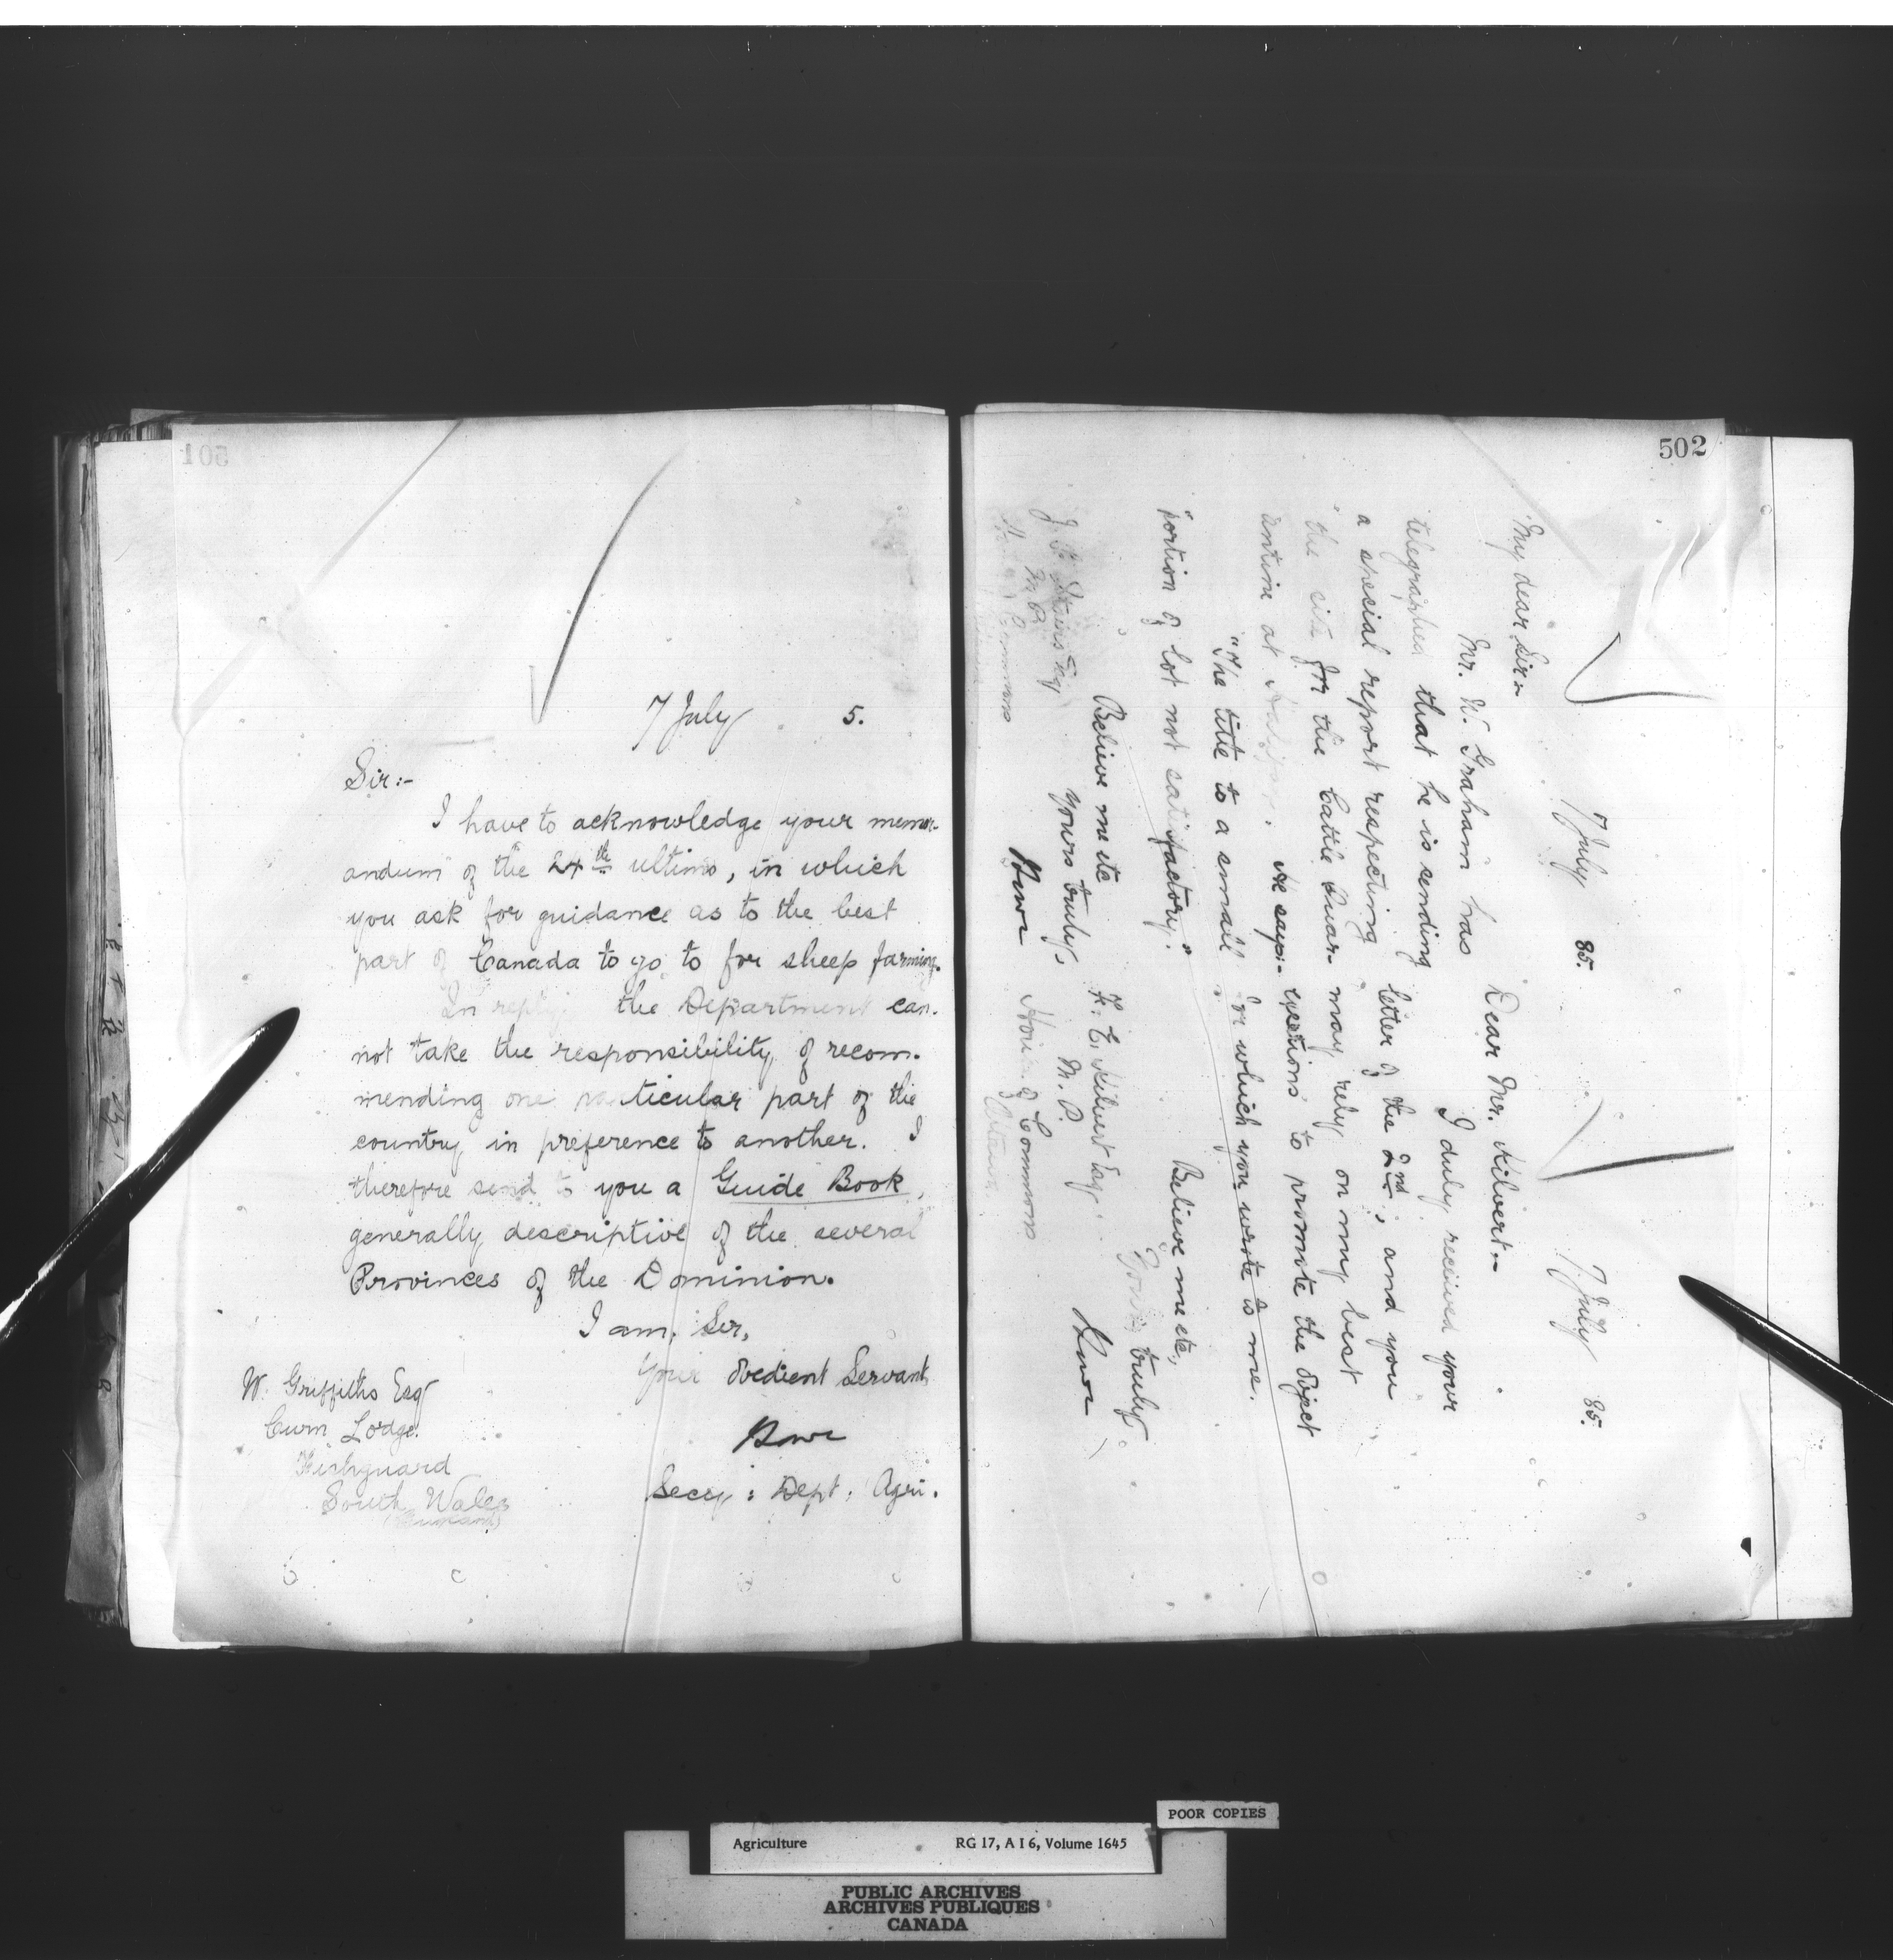 501
7 July 5.
Sir:-
I have to acknowledge your memor-
andum of the 24th ultimo, in which
you ask for guidance as to the best
part of Canada to go to for sheep farming.
In reply, the Department can-
not take the responsibility of recom-
mending one particular part of the
country in preference to another. I
therefore send to you a Guide Book,
generally descriptive of the several
Provinces of the Dominion.
I am, Sir,
Your obedient Servant
Secy: Dept: Agri.
W. Griffiths Esq
Cwm Lodge
Fishguard
South Wales
502
7 July 85.
My dear Sir:-
Mr. W. Graham has
telegraphed that he is sending
a special report respecting
the site for the Cattle Quar-
antine at Halifax. He says:-
"The title to a small
"portion of lot not satisfactory."
Believe me etc
Yours truly,
J. F. Stairs Esq
M.P.
House of Commons
7 July 85.
Dear Mr. Kilvert:-
I duly received your
letter of the 2nd, and you
may rely on my best
exertions to promote the object
for which you wrote to me.
Believe me etc,
Yours truly
F. E. Kilvert Esq
M.P.
House of Commons
Ottawa
POOR COPIES
Agriculture RG 17, A I 6, Volume 1645
PUBLIC ARCHIVES
ARCHIVES PUBLIQUES
CANADA